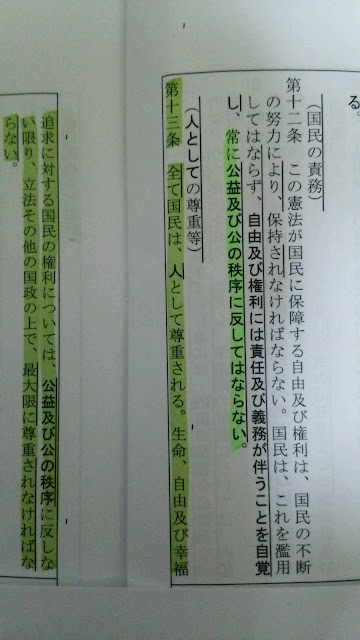 る。
(国民の責務)
第十二条 この憲法が国民に保障する自由及び権利は、国民の不断
の努力により、保持されなければならない。国民は、これを濫用
してはならず、自由及び権利には責任及び義務が伴うことを自覚
し、常に公益及び公の秩序に反してはならない。
(人としての尊重等)
第十三条 全て国民は、人として尊重される。生命、自由及び幸福
追求に対する国民の権利については、公益及び公の秩序に反しな
い限り、立法その他の国政の上で、最大限に尊重されなければな
らない。